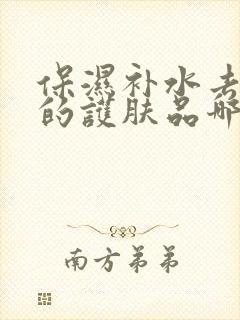 保濕补水去
的護肤品哪
南方弟弟